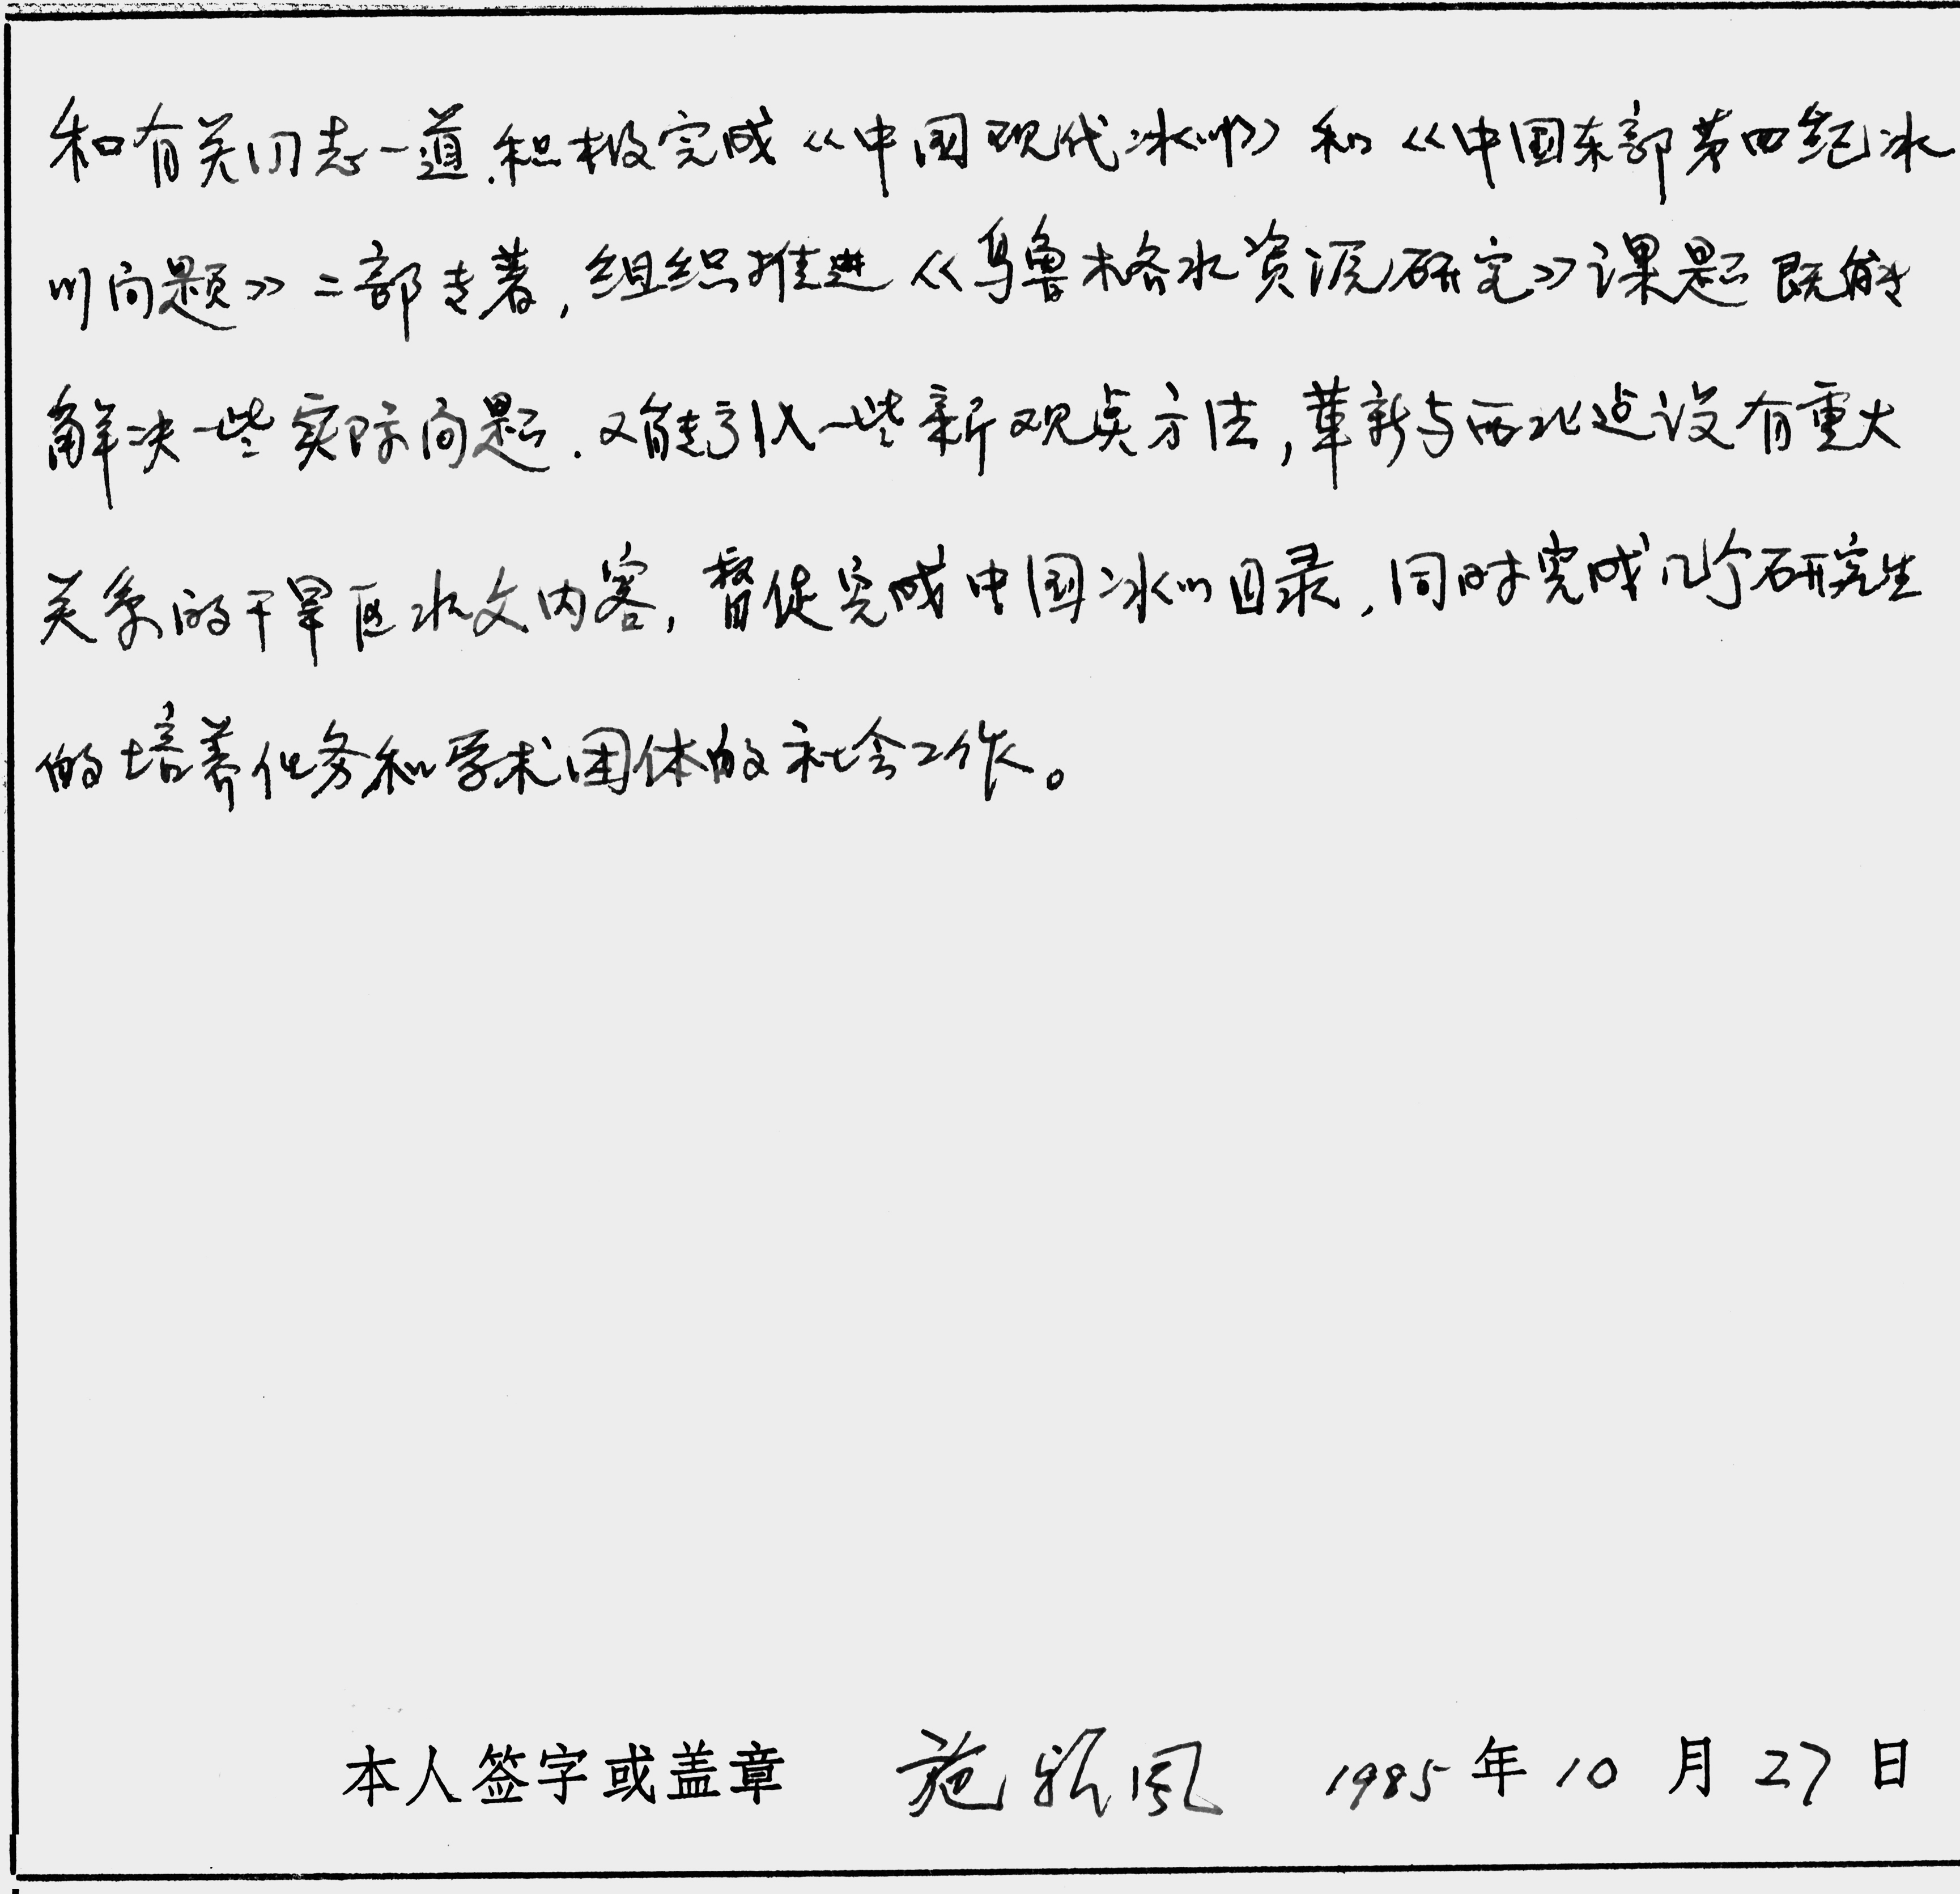 和有关同志一道.积极完成《中国现代冰川》和《中国东部第四纪冰
川问题》二部专著,组织推进《乌鲁木齐水资源研究》课题既能
解决一些实际问题.又能引入一些新观点方法,革新与西北建设有重大
关系的干旱区水文内容,督促完成中国冰川目录,同时完成几个研究生
的培养任务和学术团体的社会工作。
本人签字或盖章 施雅风 1985年10月27日